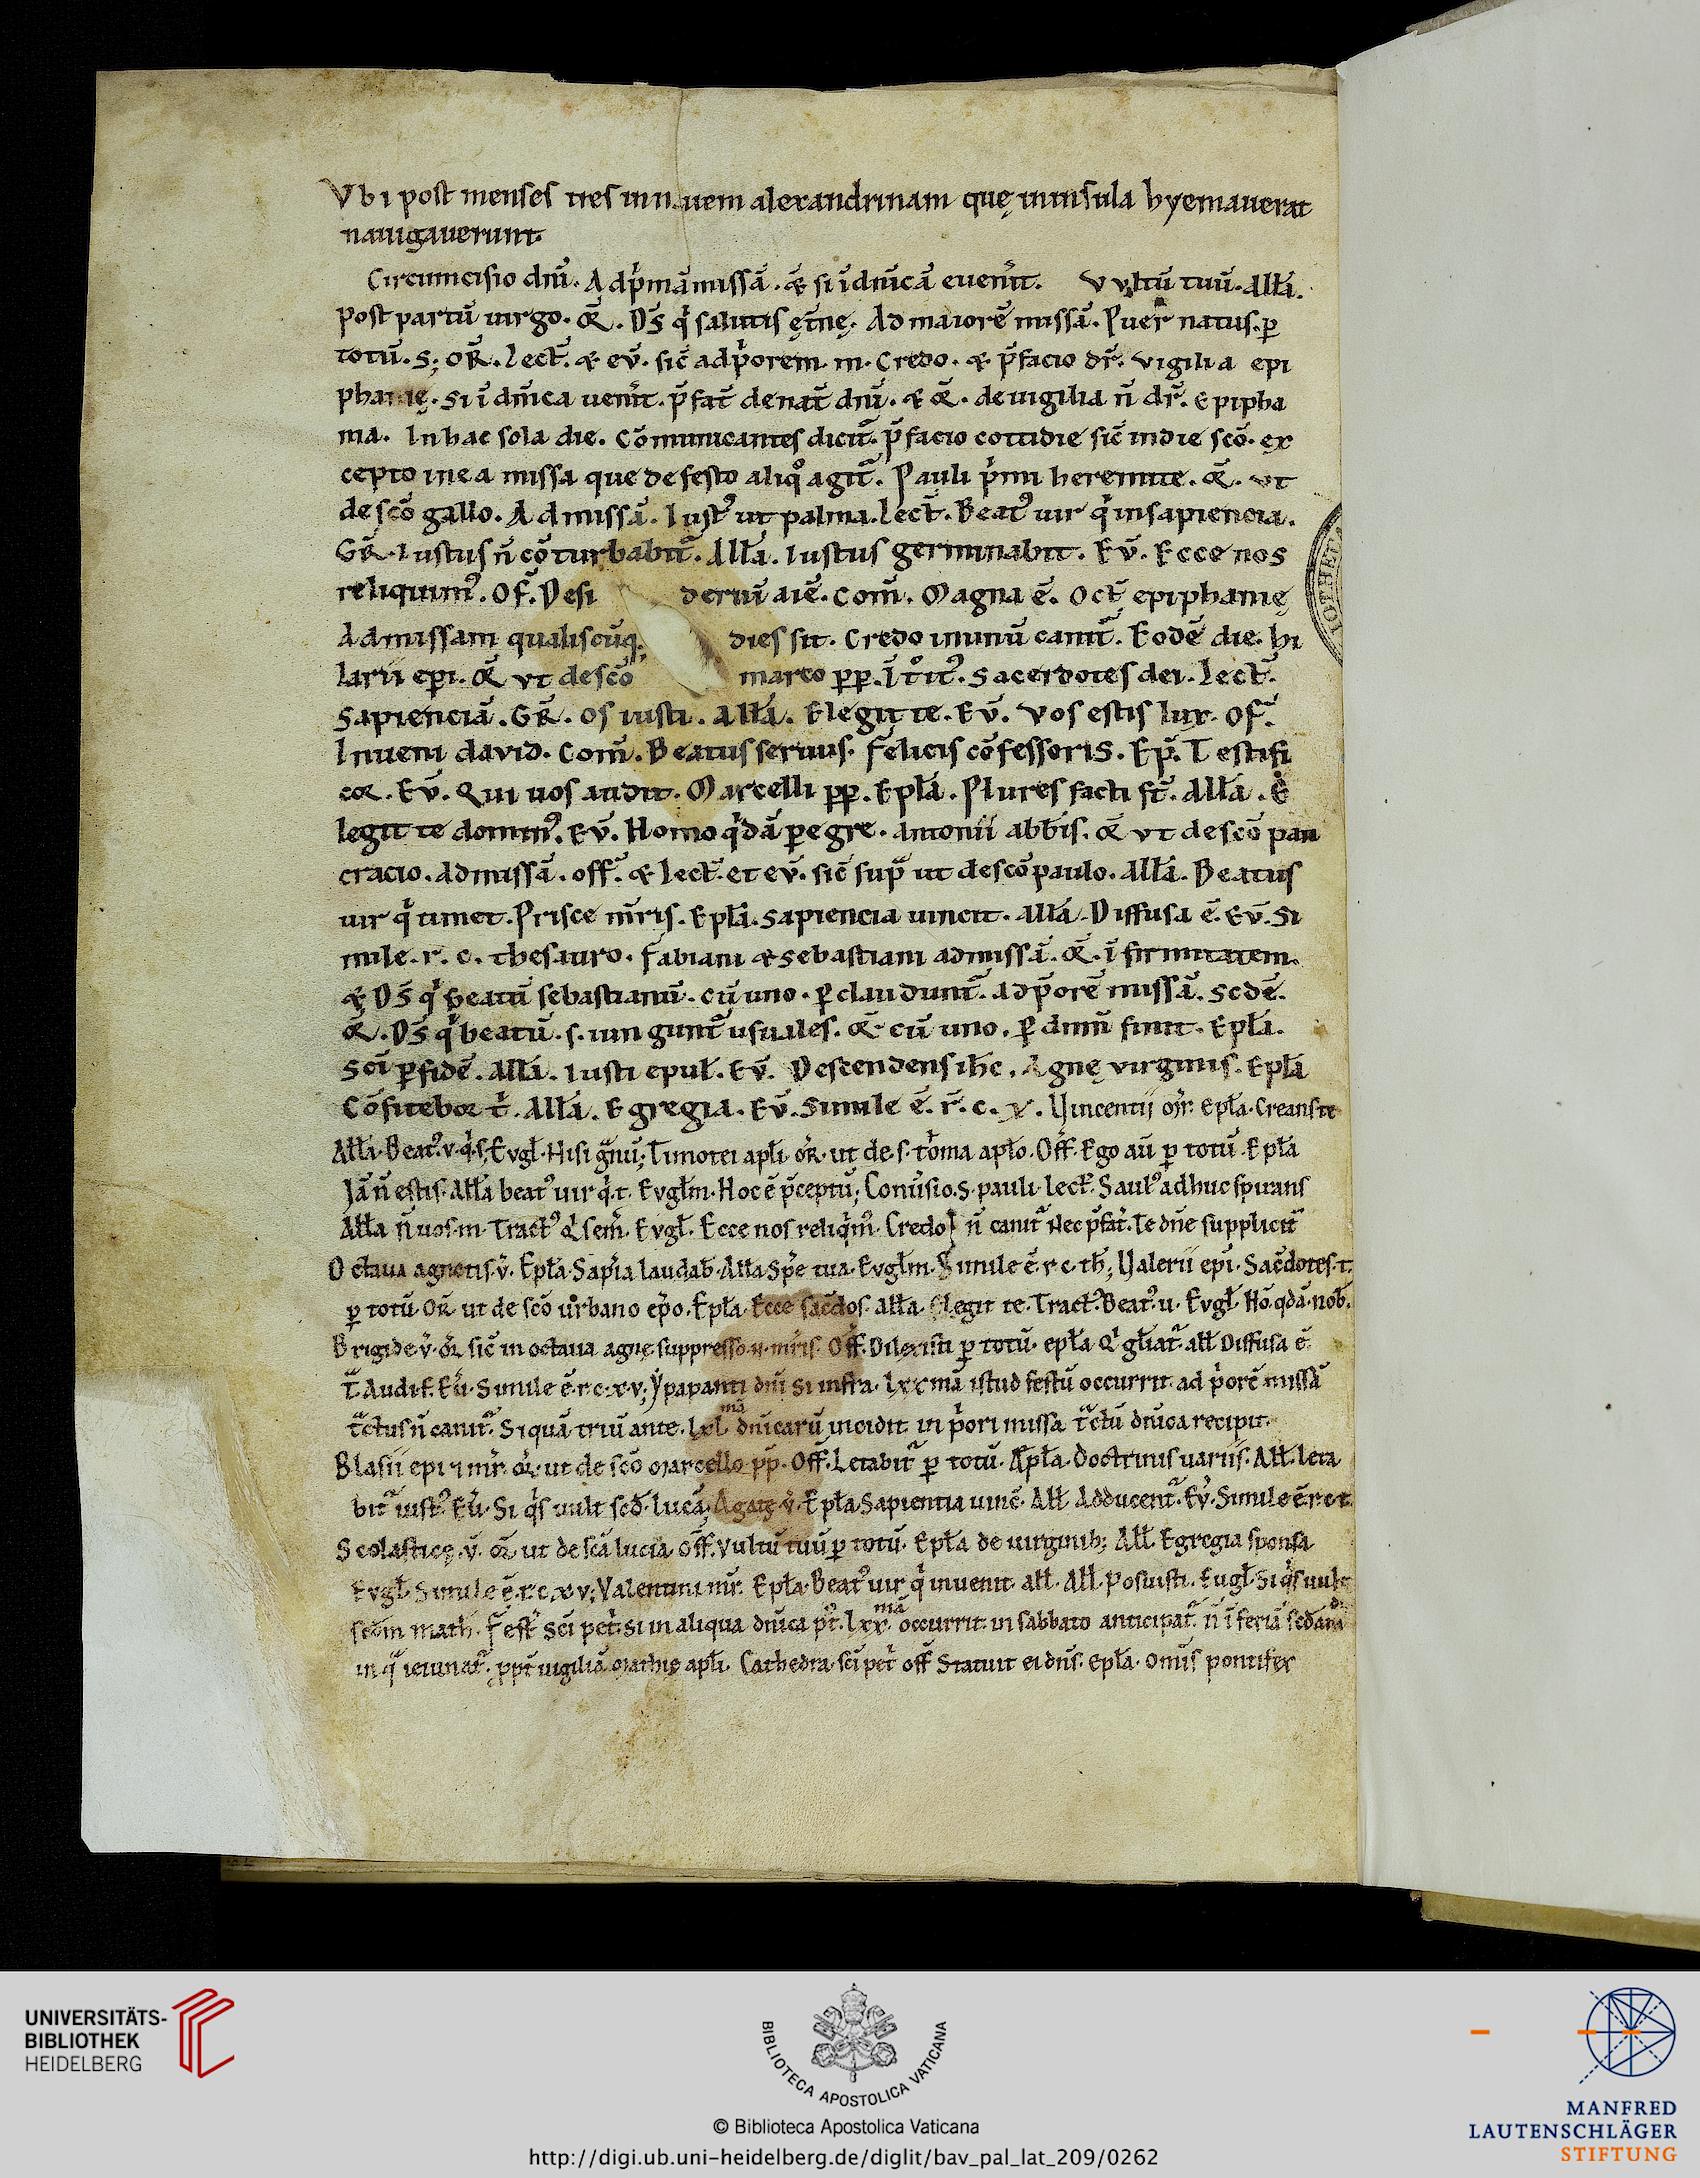 Vbi post menses tres in nauem alexandrinam quę in insula hyemauerat
nauigauerunt.
Circumcisio dnī. Ad p̄mā missā. & si ī dnīcā euenīt. Vultū tuū. allā.
Post partū uirgo. OR̄. Ds̄ q̄ salutis ętnę. Ad maiorē missā. Puer natus. p
totū. S; OR̄. lect̄. & ev̄. sic̄ ad p̄orem. in. Credo. & p̄facio dr̄. vigilia epi
phanię. Si ī dnīca uenīt. p̄fat̄ de nat̄ dnī. & OR̄. de uigilia n̄ dr̄. Epipha
nia. In hac sola die. Cōmunicantes dicit̄. p̄facio cottidie sic̄ in die scō. ex
cepto in ea missa que de festo aliqo agit̄. Pauli p̄mi heremite. OR̄. vt
de scō gallo. Ad missā. Iust9 ut palma. lect̄. Beat9 uir q̄ in sapiencia.
GR̄. Iustus n̄ cōturbabit̄. Allā. Iustus germinabit. Ev̄. Ecce nos
reliquim9. Of̄. Desi deriū aīē. Com̄. Magna ē. Oct̄ epiphanię
Ad missam qualiscūq; dies sit. Credo in unū canit̄. Eodē die. hi
larii epi. OR̄ vt de scō marco pp. ītoit9. Sacerdotes dei. lect̄.
Sapienciā. GR̄. Os iusti. allā. Elegit te. Ev̄. Vos estis lux. Of̄.
Inueni dauid. Com̄. Beatus seruus. Felicis cōfessoris. Ep̄. Testifi
cor. Ev̄. Qui uos audit. Marcelli pp. Eplā. Plures facti st̄. allā. E
legit te domin9. Ev̄. Homo q̄dā pegre. Antonii abbīs. OR̄ vt de scō pan
cracio. Ad missā. off̄. & lect̄. et ev̄. sic̄ sup̄ ut de scō paulo. allā. Beatus
uir q̄ timet. Prisce mr̄is. Eplā. sapiencia uincit. allā. Diffusa ē. Ev̄. Si
mile. r. c. thesauro. Fabiani & Sebastiani ad missā. OR̄. īfirmitatem
& Ds̄ q̄ beatū sebastianū. cū uno. p claudunt̄. Ad p̄orē missā. Scdē.
OR̄. Ds̄ q̄ beatū. s. iungunt̄ usuales. OR̄ cū uno. p dnm̄ finit. Eplā.
Scī p fidē. Allā. Iusti epul̄. Ev̄. Descendens ihc. Agnę virginis. Eplā
Cōfitebor t̄. Allā. Egregia. Ev̄. Simile ē. r̄. c. x. Vincentii mr̄. Eplā. Creans te
Allā. Beat9 v. q̄. s; Evgl̄. Nisi ḡnū; Timotei aplī. or̄. ut de. s. toma aplo. Off̄. Ego aū p totū. Eplā
Jā n̄ estis. Allā beat9 uir q̄. t. Evglm̄. Hoc ē p̄ceptū; Conūsio. S. pauli. lect̄. Saul9 adhuc spirans
Allā n̄ uos. m. Tract9 Q sem̄. Evgl̄. Ecce nos reliq̄m9. Credo n̄ canit̄ Nec p̄fat̄. Te dnē suppliciť
Octaua agnetis. v̄. Eplā. Sapīa laudab̄. Allā Spē tua. Evglm̄. Simile ē r c th; Valerii epī. Sacēdotes. t.
p totū OR̄ ut de scō urbano epo. Eplā. Ecce sacēdos. alla. Elegit te. Tract9. Beat9. u. Evgl̄. Hō. qdā. nob̄.
Brigide v̄. or̄ sic̄ in octaua agnę suppresso. n. mr̄is. Off̄. Dilexisti p totū. eplā Q gliat̄. all̄ Diffusa ē.
T̄ Audi f. Eū. Simile ē. r c. x. v; Ypapanti dnī si infra. lxx mā istud festū occurrit. ad p̄orē missā
t̄ctus n̄ canit̄. Si quā triū ante. lxl mā dnīcarū incidit in p̄ori missa t̄ctū dnīca recipit.
Blasii epi 7 mr̄. or̄. ut de scō marcello pp̄. Off̄. Letabit̄ p totū. Aplā. doctrinis uariis. All̄. leta
bit̄ iust9. Eū. Si q̄s uult scd̄. lucā; Agatę. v̄. Eplā Sapientia uinc̄. All̄ Adducent̄. Ev̄. Simile ē r c t.
Scolasticę. v̄. or̄ ut de scā lucia off̄. vultū tuū p totū. Eplā de uirginib; All̄. Egregia sponsa
Evgl̄ Simile ē. r c x v; Valentini mr̄. Eplā. Beat9 uir q̄ inuenit. all̄. All̄. Posuisti. Eugl̄. Si q̄s uult
scdm math̄. Fest̄ scī pet̄. si in aliqua dnīca pt̄. lxx mā occurrit. in sabbato anticipat̄. n̄ ī feriā scdam
in q̄ ieiunat̄. ppt̄ uigiliā mathię aplī. Cathedra. scī pet̄ off̄ Statuit ei dns̄. eplā. omīs pontifex
OTHECA
UNIVERSITÄTS-
BIBLIOTHEK
HEIDELBERG
BIBLIOTECA APOSTOLICA VATICANA
© Biblioteca Apostolica Vaticana
http://digi.ub.uni-heidelberg.de/diglit/bav_pal_lat_209/0262
MANFRED
LAUTENSCHLÄGER
STIFTUNG